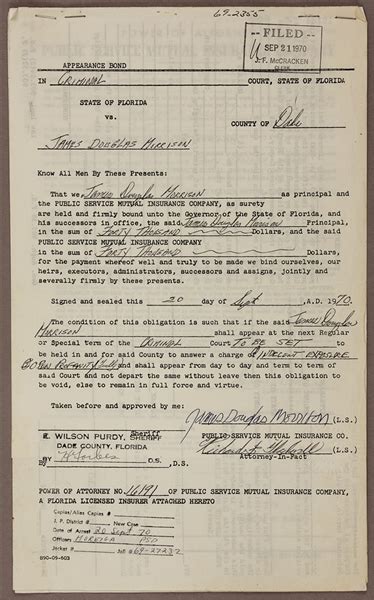 69-2355
FILED
SEP 21 1970
J. F. McCRACKEN
CLERK
APPEARANCE BOND
IN CRIMINAL COURT, STATE OF FLORIDA
STATE OF FLORIDA
vs. COUNTY OF Dade
JAMES DOUGLAS MORRISON
Know All Men By These Presents:
That we, James Douglas Morrison as principal and
the PUBLIC SERVICE MUTUAL INSURANCE COMPANY, as surety
are held and firmly bound unto the Governor of the State of Florida, and
his successors in office, the said James Douglas Morrison Principal,
in the sum of FORTY THOUSAND Dollars, and the said
PUBLIC SERVICE MUTUAL INSURANCE COMPANY
in the sum of FORTY THOUSAND Dollars,
for the payment whereof well and truly to be made we bind ourselves, our
heirs, executors, administrators, successors and assigns, jointly and
severally firmly by these presents.
Signed and sealed this 20 day of Sept, A.D. 1970.
The condition of this obligation is such that if the said James Douglas
MORRISON shall appear at the next Regular
or Special Term of the CRIMINAL Court TO BE SET
to be held in and for said County to answer a charge of INDECENT EXPOSURE
PROFANITY and shall appear from day to day and term to term of
said Court and not depart the same without leave then this obligation to
be void, else to remain in full force and virtue.
Taken before and approved by:
James Douglas Morrison (L.S.)
E. WILSON PURDY, Sheriff SHERIFF PUBLIC SERVICE MUTUAL INSURANCE CO.
DADE COUNTY, FLORIDA
BY D.S. (L.S.)
BY D.S. Attorney-In-Fact
POWER OF ATTORNEY NO. 16191 OF PUBLIC SERVICE MUTUAL INSURANCE COMPANY,
A FLORIDA LICENSED INSURER ATTACHED HERETO
Capias/Alias Capias #
J. P. District # New Case
Date of Arrest 20 Sept 70
Officers PSD
Jacket # Jail # 69-27232
890-09-603